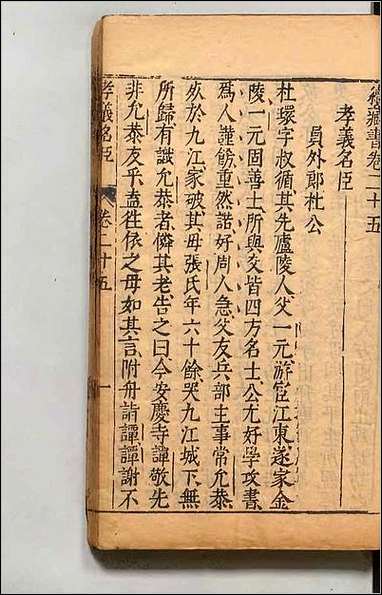 續藏書卷二十五
孝義名臣
員外郎杜公
杜環字叔循其先廬陵人父一元游宦江東遂家金
陵一元固善士所與交皆四方名士公尤好學攻書
爲人謹飭重然諾好周人急父友兵部主事常允恭
死於九江家破其母張氏年六十餘哭九江城下無
所歸有識允恭者憐其老告之曰今安慶守譚敬先
非允恭友乎盍往依之母如其言附舟詣譚譚謝不
孝義名臣
卷二十五
一